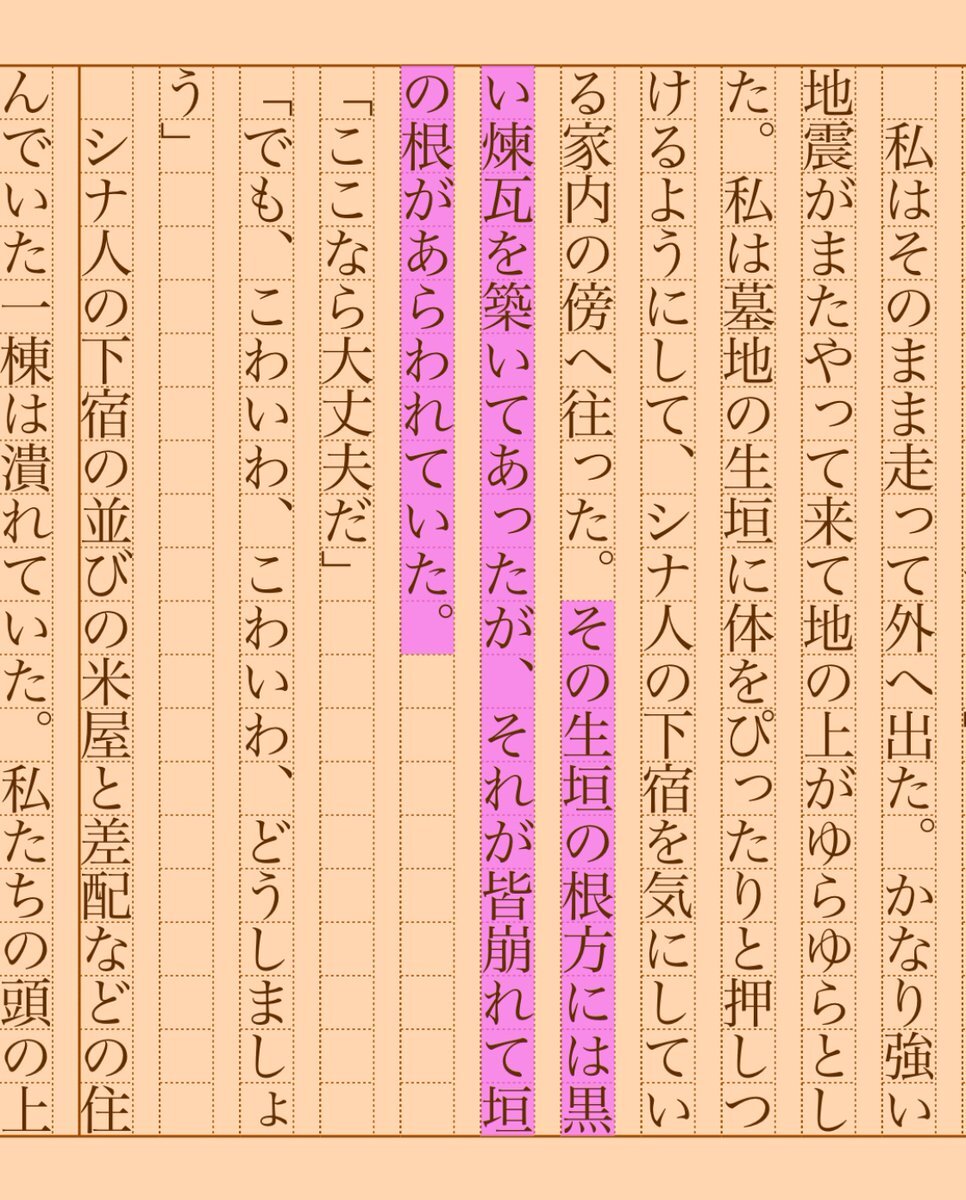 私はそのまま走って外へ出た。かなり強い
地震がまたやって来て地の上がゆらゆらとし
た。私は墓地の生垣に体をぴったりと押しつ
けるようにして、シナ人の下宿を気にしてい
る家内の傍へ往った。その生垣の根方には黒
い煉瓦を築いてあったが、それが皆崩れて垣
の根があらわれていた。
「ここなら大丈夫だ」
「でも、こわいわ、こわいわ、どうしましょ
う」
シナ人の下宿の並びの米屋と差配などの住
んでいた一棟は潰れていた。私たちの頭の上